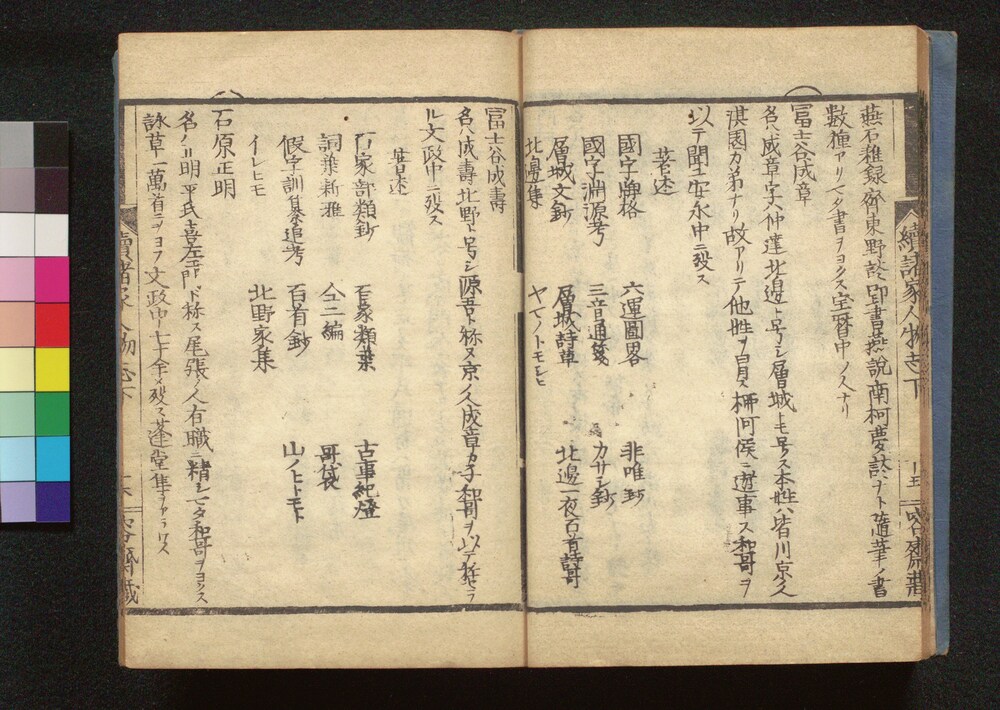 燕石雜録齊東野談郢書燕説南柯夢談ナト隨筆ノ書
數種アリマタ書ヲヨクス宝暦中ノ人ナリ
冨士谷成章
名ハ成章字ハ仲達北邊ト号シ層城トモ号ス本姓ハ皆川京ノ人
淇園カ弟ナリ故アリテ他姓ヲ冒ス柳河侯ニ遊事ス和哥ヲ
以テ聞ユ安永中ニ殁ス
著述
國字牌格 六運圖畧 非唯抄
國字淵源考 三音通箋 カサシ鈔
層城文鈔 層城詩草 北邊一夜百首詩哥
北邊集 ヤマノトモシヒ
續諸家人物志下
冨士谷成壽
名ハ成壽北野ト号シ源吾ト称ス京ノ人成章カ子和哥ヲ以テ
ル文政中ニ殁ス
著述
百家部類鈔 百家類葉 古事紀燈
詞葉新雅 仝三編 哥袋
假字訓纂追考 百首鈔 山ノヒトモト
イレヒモ 北野家集
石原正明
名ハ正明平氏喜左エ門ト称ス尾張ノ人有職ニ精シマタ和哥ヲヨクス
詠草一萬首ニヲヨフ文政中七十余ニメ殁ス蓬堂隼
續諸家人物志下